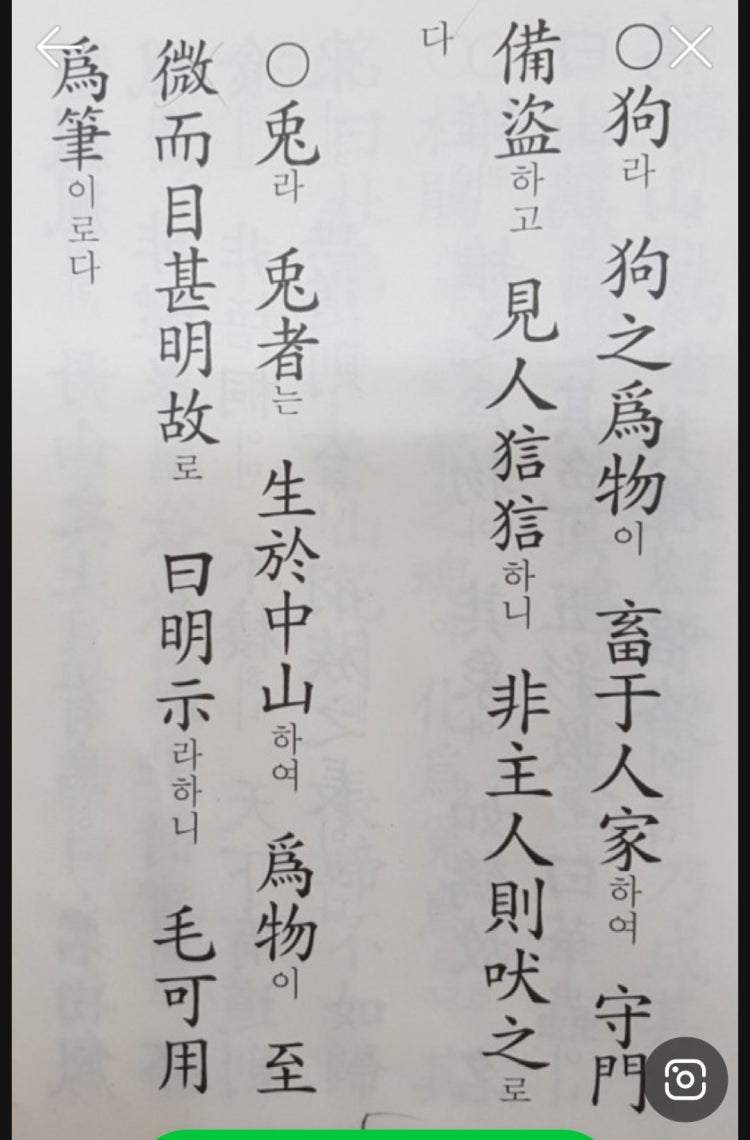 ○狗라 狗之爲物이 畜于人家하여 守門
備盜하고 見人狺狺하니 非主人則吠之로
다
○兎라 兎者는 生於中山하여 爲物이 至
微而目甚明故로 曰明示라하니 毛可用
爲筆이로다